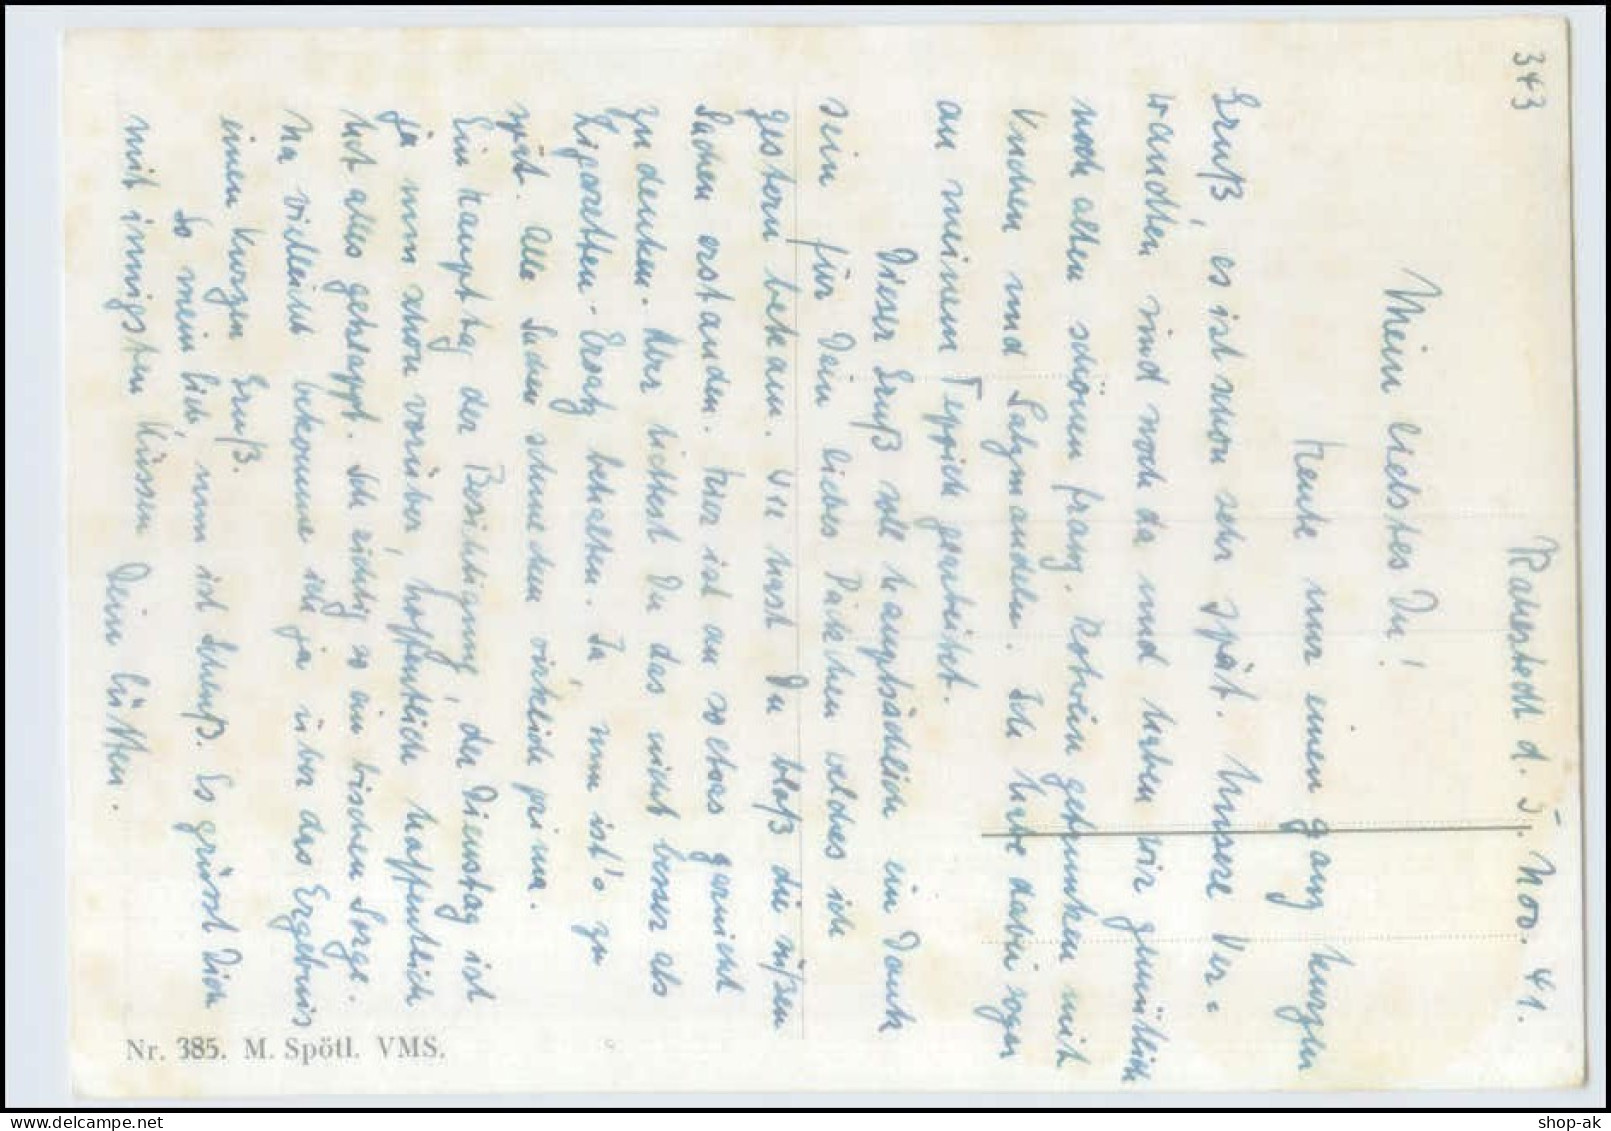 343
Rahlstedt d. 5. Nov. 41.
Mein liebstes Du!
Heute nur einen ganz kurzen
Gruß, es ist schon sehr spät. Unsere Ver-
wandten sind noch da und haben wir gemütlich
noch alten schönen franz. Rotwein getrunken mit
Kuchen und Salzmandeln. Ich habe dabei sogar
an meinem Teppich gearbeitet.
Dieser Gruß soll hauptsächlich ein Dank
sein für Dein liebes Päckchen welches ich
gestern bekam. Wie hast Du bloß die süßen
Sachen erstanden. Hier ist an so etwas garnicht
zu denken. Aber hättest Du das nicht besser als
Zigaretten-Ersatz behalten. Ja, nun ist's zu
spät. Alle Sachen schmecken wirklich prima.
Ein Haupttag der Besichtigung, der Dienstag ist
ja nun schon vorüber, hoffentlich hoffentlich
hat alles geklappt. Ich richtig so ein bischen Sorge.
Na vielleicht bekomme ich ja über das Ergebnis
einen kurzen Gruß.
So mein Lieb, nun ist Schluß. Es grüsst Dich
mit innigsten Küssen Dein
Nr. 385. M. Spötl. VMS.
shop-ak